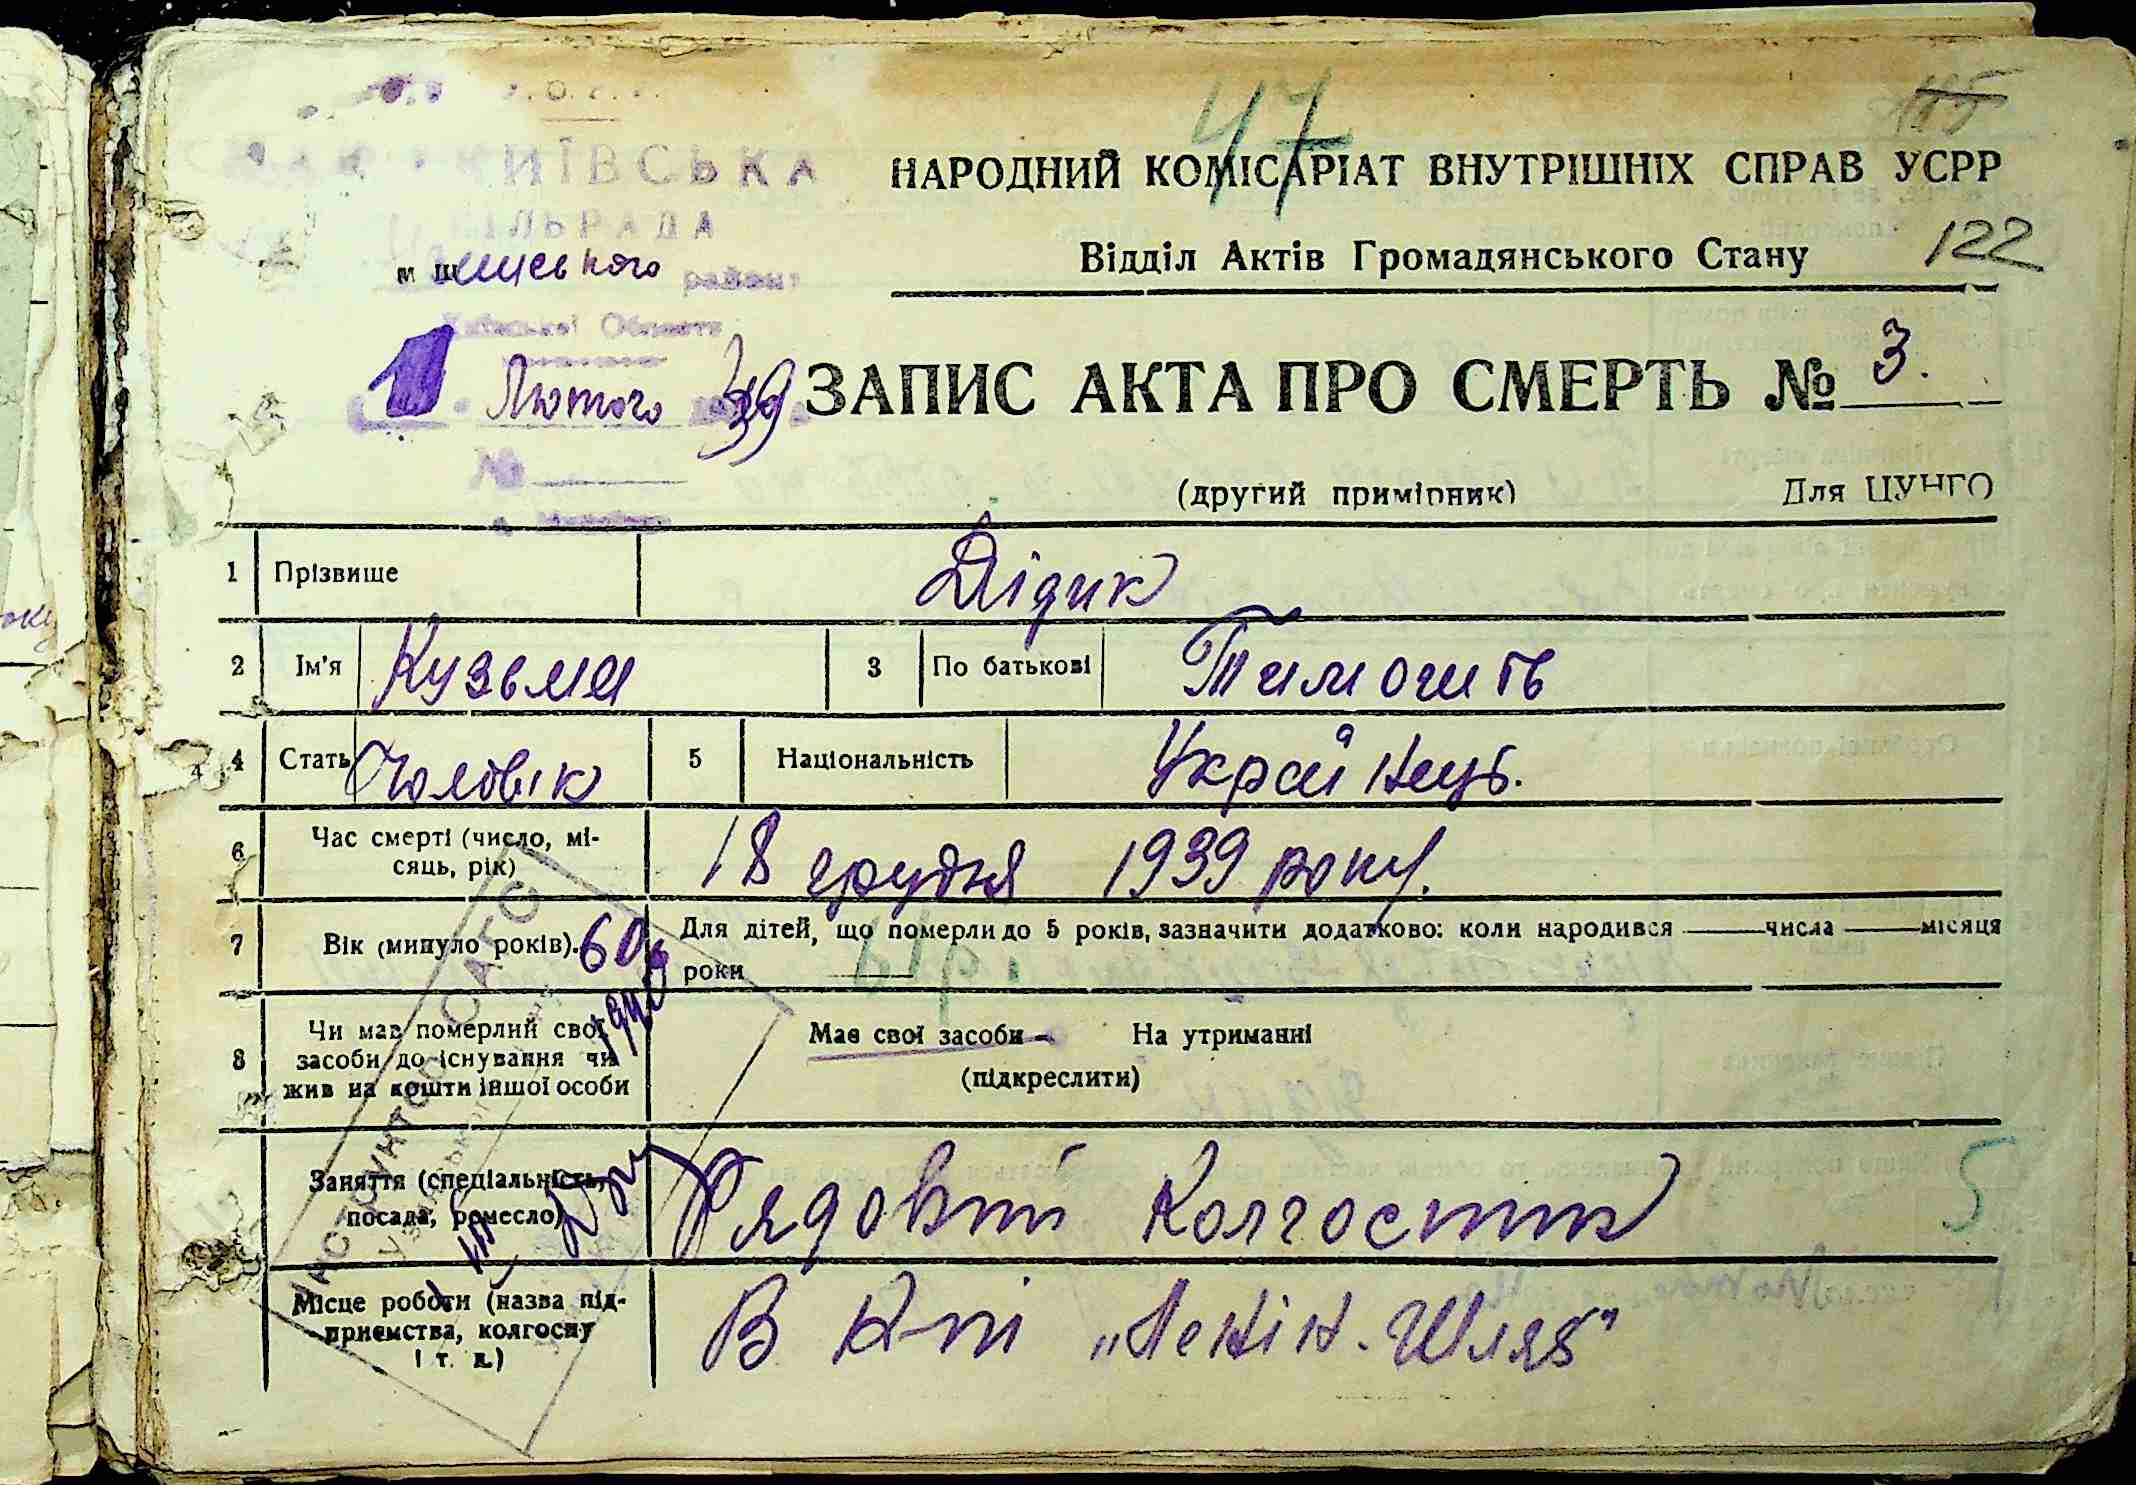 47
КИЇВСЬКА
СІЛЬРАДА
району
Київської Области
1 Лютого 39
№
НАРОДНИЙ КОМІСАРІАТ ВНУТРІШНІХ СПРАВ УСРР
Відділ Актів Громадянського Стану
122
ЗАПИС АКТА ПРО СМЕРТЬ № 3.
(другий примірник) Для ЦУНГО
1 Прізвище Дідик
2 Ім'я Кузьма 3 По батькові
4 Стать Чоловік 5 Національність Украйнець.
6 Час смерті (число, мі-
сяць, рік) 18 грудня 1939 року.
7 Вік (минуло років). 60 Для дітей, що померли до 5 років, зазначити додатково: коли народився числа місяця
роки
8 Чи мав померлий свої
засоби до існування чи
жив на кошти іншої особи
Має свої засоби На утриманні
(підкреслити)
Заняття (спеціальність,
посада, ремесло) Рядовий Колгоспник
5
Місце роботи (назва під-
приємства, колгоспу
і т. д.)
В К-пі „Ленін. Шлях"